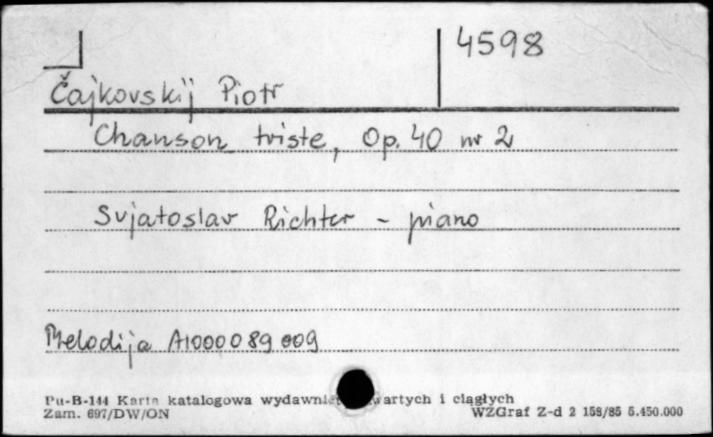 4598
Čajkovskij Piotr
Chanson triste, Op. 40 nr 2
Svjatoslav Richter - piano
Melodija A1000089 009
Pu-B-144 Karta katalogowa wydawnictw zwartych i ciągłych
Zam. 697/DW/ON WZGraf Z-d 2 158/85 5.450.000